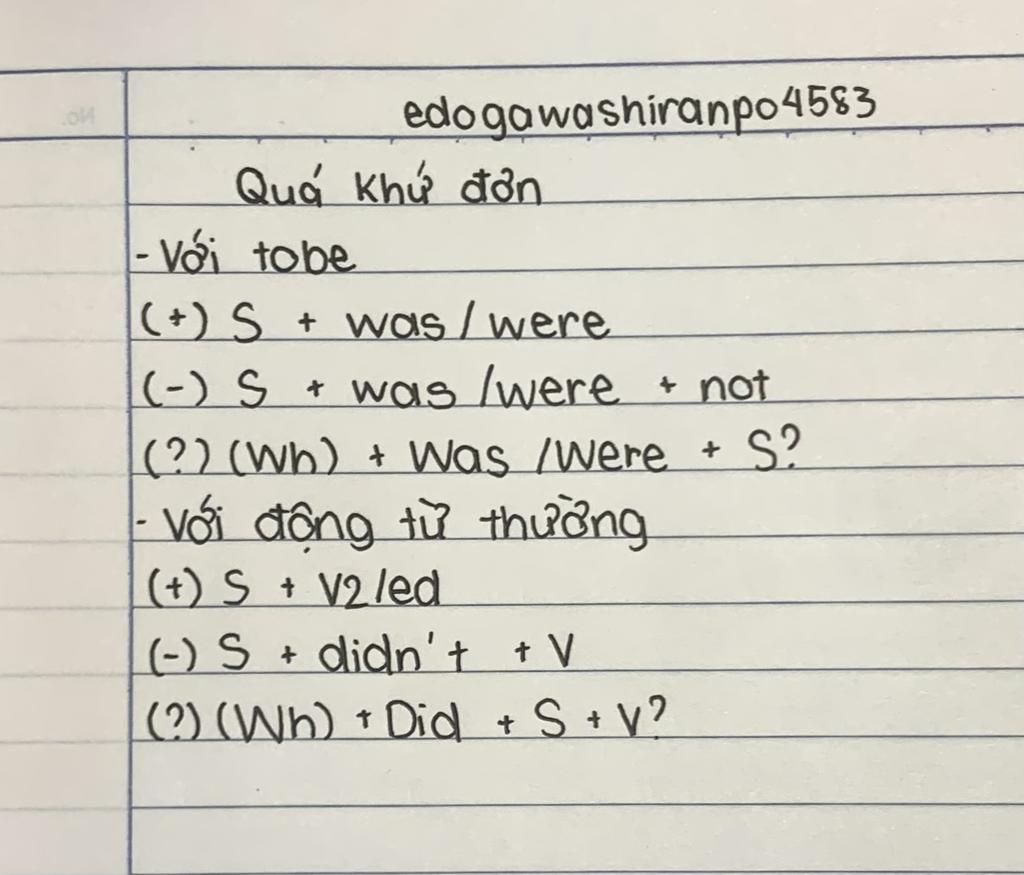 No.
edogawashiranpo4583
Quá khứ đơn
- Với tobe
(+) S + was / were
(-) S + was /were + not
(?) (Wh) + Was /Were + S?
- Với động từ thường
(+) S + V2/ed
(-) S + didn't + V
(?) (Wh) + Did + S + V?